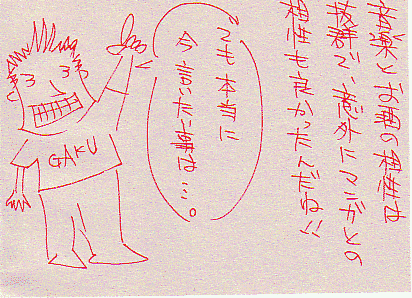 音楽とお酒の相性は
抜群で、意外にマンガとの
相性も良かったんだね!!
でも本当に
今言いたい事は…。
GAKU